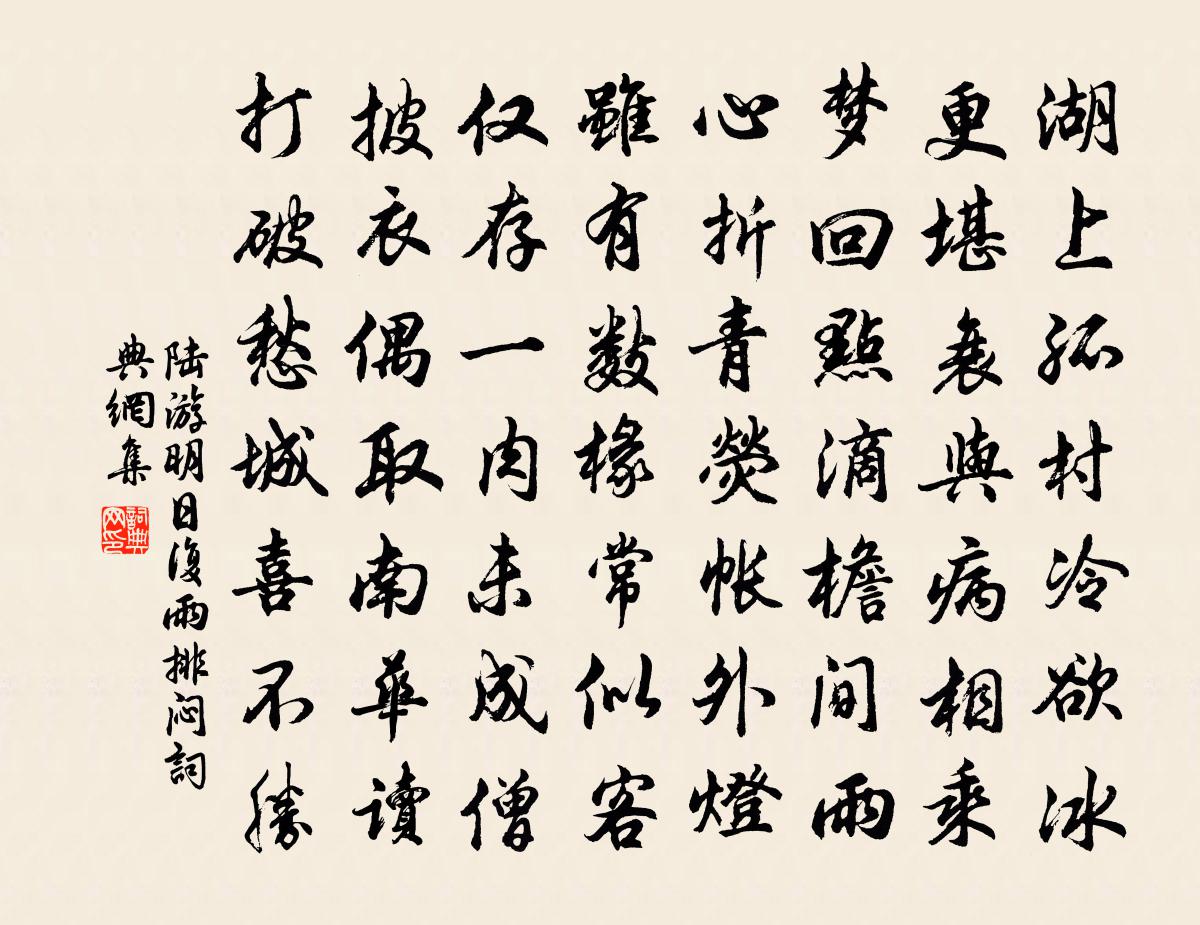 湖上孤村冷欲冰
更堪衰與病相乘
梦回點滴檐间雨
心折青熒帐外燈
雖有數椽常似客
仅存一肉未成僧
披衣偶取南華讀
打破愁城喜不勝
陆游明日復雨排闷詞
典網集
詞典
网印